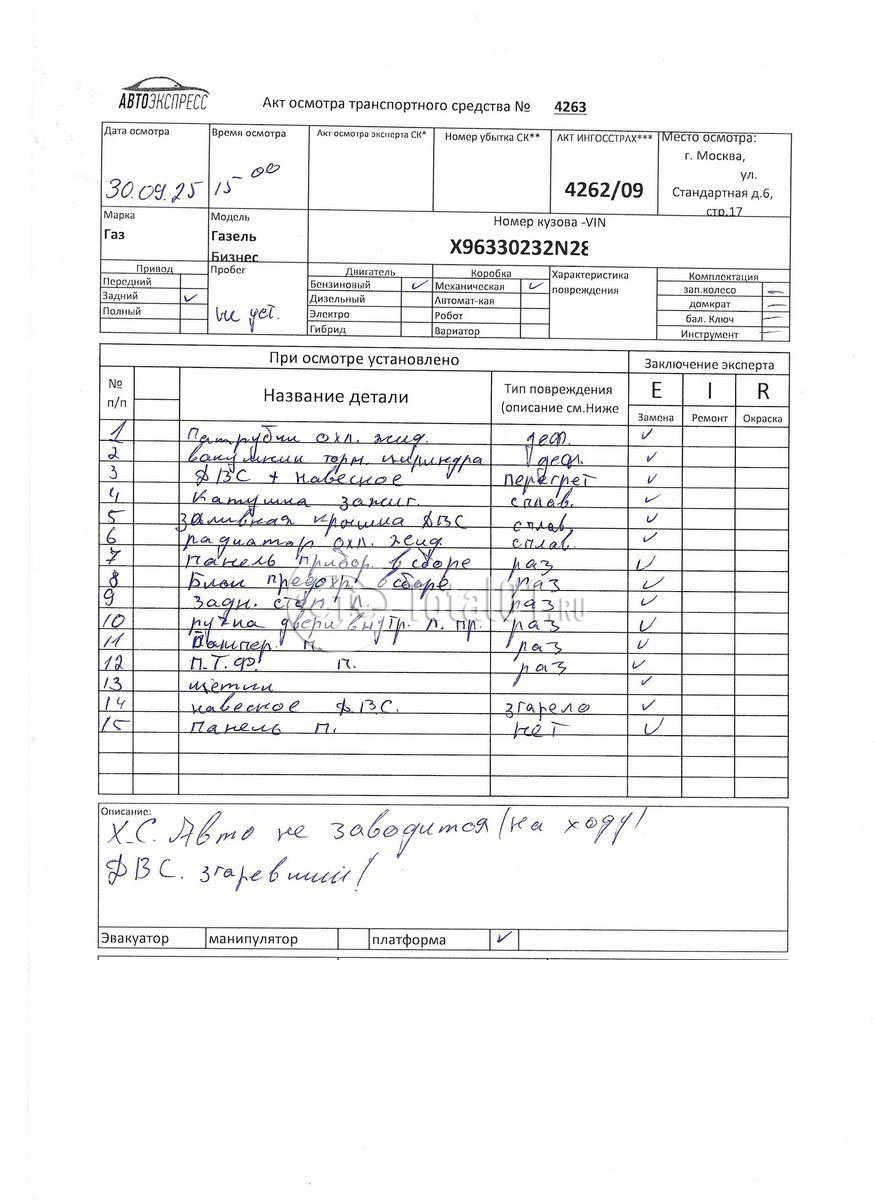 АВТОЭКСПРЕСС
Акт осмотра транспортного средства № 4263
Дата осмотра Время осмотра Акт осмотра эксперта СК* Номер убытка СК** АКТ ИНГОССТРАХ*** Место осмотра:
г. Москва,
ул.
30.09.25 15 00 4262/09 Стандартная д.6,
стр.17
Марка Модель Номер кузова -VIN
Газ Газель Бизнес X96330232N28
Привод Пробег Двигатель Коробка Характеристика повреждения Комплектация
Передний Бензиновый ✓ Механическая ✓ зап.колесо —
Задний ✓ Дизельный Автомат-кая домкрат —
Полный не уст. Электро Робот бал. Ключ —
Гибрид Вариатор Инструмент —
При осмотре установлено Заключение эксперта
№ п/п Название детали Тип повреждения (описание см.Ниже E I R
Замена Ремонт Окраска
1 патрубки охл. жид. деф. ✓
2 вакумкии торм. цилиндра деф. ✓
3 ДВС + навесное перегрет ✓
4 Катушка зажиг. сплав. ✓
5 заливная крышка ДВС сплав. ✓
6 радиатор охл. жид. сплав. ✓
7 панель прибор. в сборе раз ✓
8 Блок предохр. в сборе раз ✓
9 задн. стоп л. раз ✓
10 ручка двери внутр. л. пр. раз ✓
11 Бампер. п. раз ✓
12 П.Т.Ф. п. раз ✓
13 щетки ✓
14 навесное ДВС. згарело ✓
15 Панель п. нет ✓
Total01.RU
Описание:
Х.С. Авто не заводится (на ходу)
ДВС. згаревший!
Эвакуатор манипулятор платформа ✓